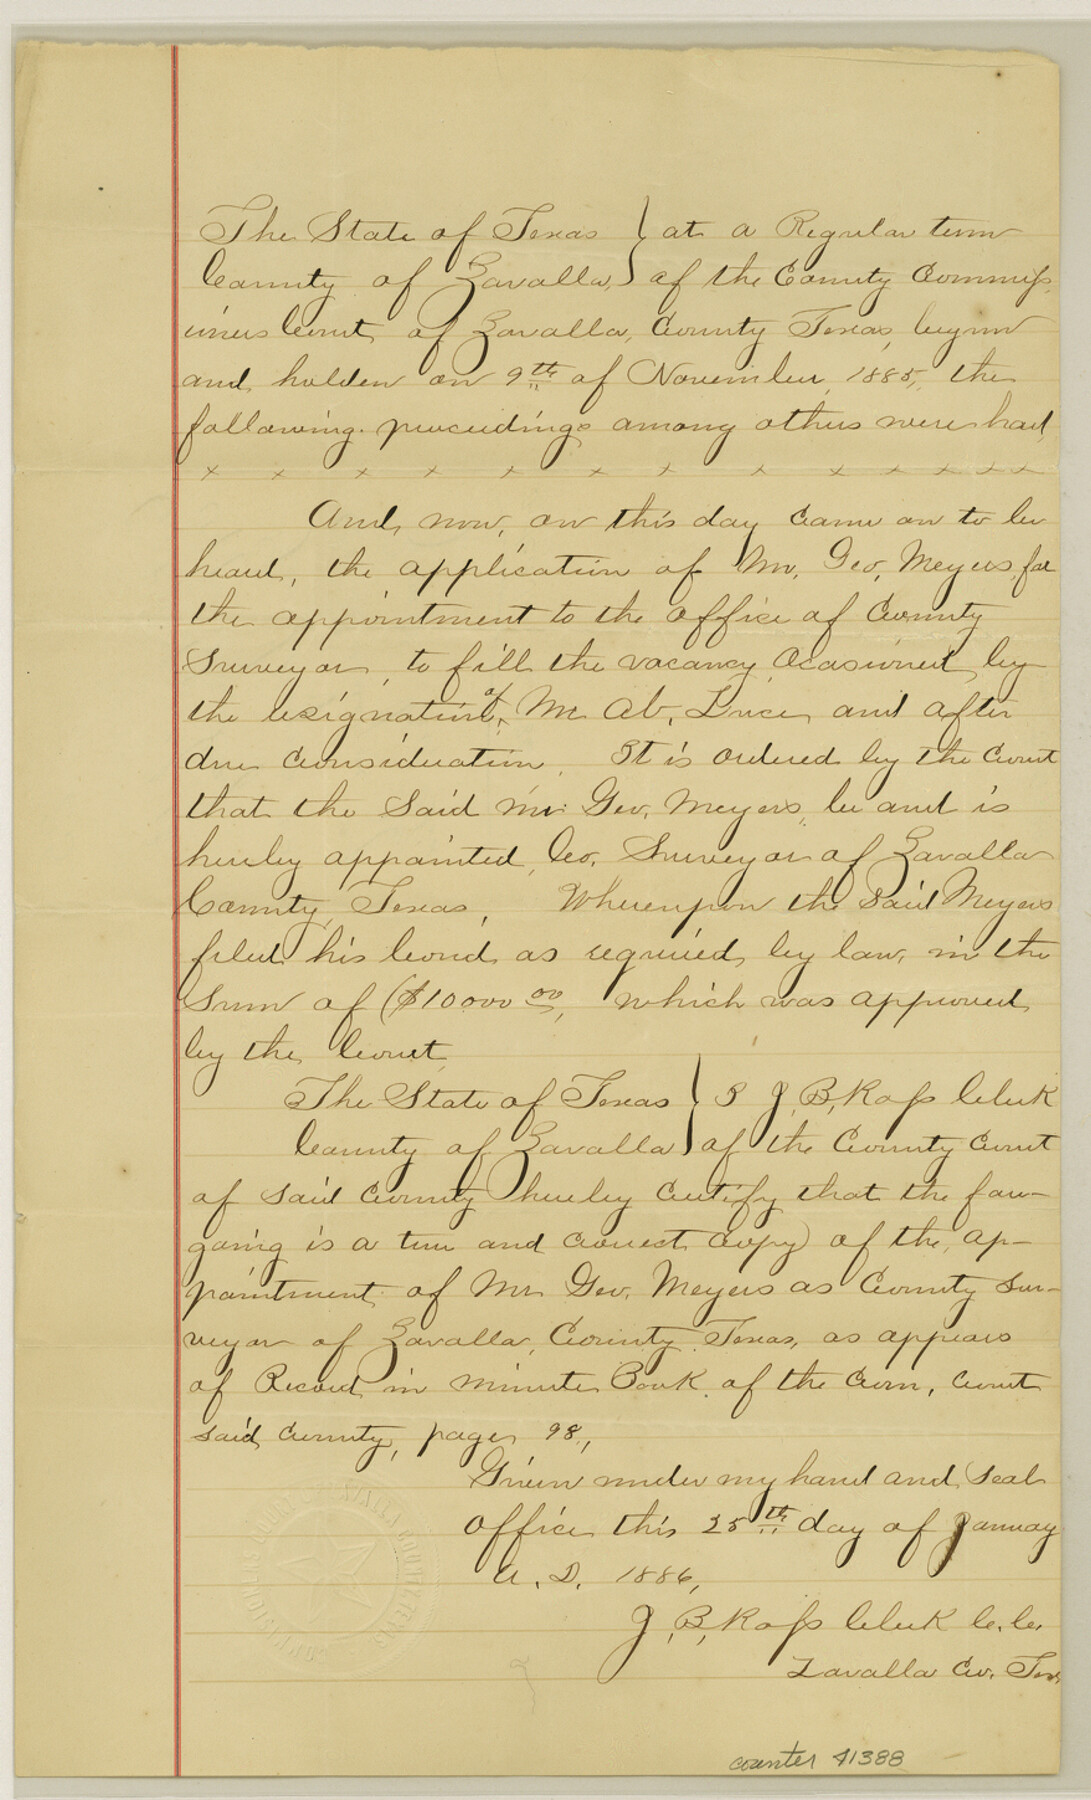 The State of Texas } at a Regular term
County of Zavalla, } of the County Commiss
ioners Court of Zavalla, County Texas, begun
and, holden on 9th of November, 1885, the
following proceedings among others were had
x x x x x x x x x x x x x
And, now, on this day came on to be
heard, the application of Mr. Geo, Meyers, for
the appointment to the office of County
Surveyor, to fill the vacancy, Ocasioned, by
the resignation of, Mr Ab, Luce, and after
due consideration. It is ordered by the Court
that the said Mr. Geo, Meyers, be and is
hereby appointed, Co. Surveyor of Zavalla
County, Texas, Whereupon the said Meyers
filed his bond, as required, by law, in the
Sum of ($10000 00, which was approved
by the Court,
The State of Texas } I J, B, Ross Clerk
County of Zavalla } of the County Court
of said County hereby Certify that the for-
going is a true and correct copy) of the, ap-
pointment of Mr Geo, Meyers as County Sur-
veyor of Zavalla, County, Texas, as appears
of Record, in minute Book, of the Com, Court
said, County, page, 98,
Given under my hand and, seal
office, this 25th day of January
A. D. 1886,
J, B, Ross Clerk C. C.
Zavalla Co. Tex,
counter 41388